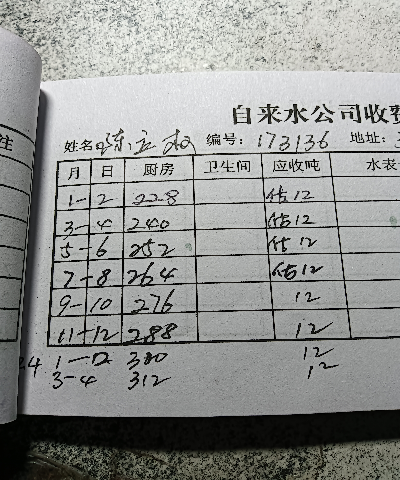 注
自来水公司收费
姓名 陈立权 编号: 173136 地址:
月 日 厨房 卫生间 应收吨 水表
1-2 228 估12
3-4 240 估12
5-6 252 估12
7-8 264 估12
9-10 276 12
11-12 288 12
24. 1-2 300 12
3-4 312 12